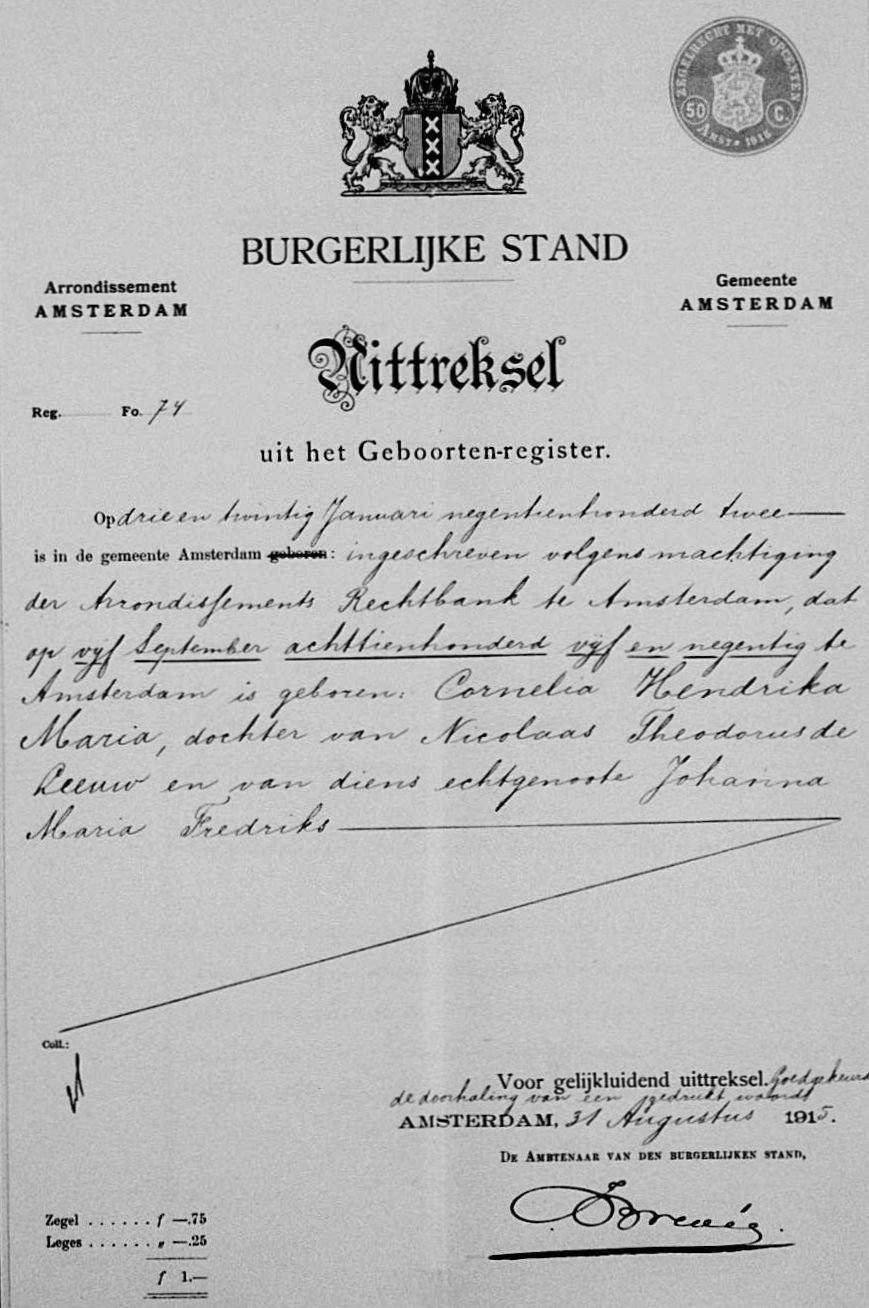 ZEGELRECHT MET OPCENTEN
50 C.
BURGERLIJKE STAND
Arrondissement
AMSTERDAM
Gemeente
AMSTERDAM
Uittreksel
Reg. Fo. 74
uit het Geboorten-register.
Op drie en twintig Januari negentienhonderd twee
is in de gemeente Amsterdam geboren: ingeschreven volgens machtiging
der Arrondissements Rechtbank te Amsterdam, dat
op vijf September achttienhonderd vijf en negentig te
Amsterdam is geboren: Cornelia Hendrika
Maria, dochter van Nicolaas Theodorus de
Leeuw en van diens echtgenoote Johanna
Maria Fredriks
Coll.:
Voor gelijkluidend uittreksel. Goedgekeurd
de doorhaling van een gedrukt woord
AMSTERDAM, 31 Augustus 1915.
DE AMBTENAAR VAN DEN BURGERLIJKEN STAND,
Zegel ...... f —.75
Leges ...... „ —.25
f 1.—